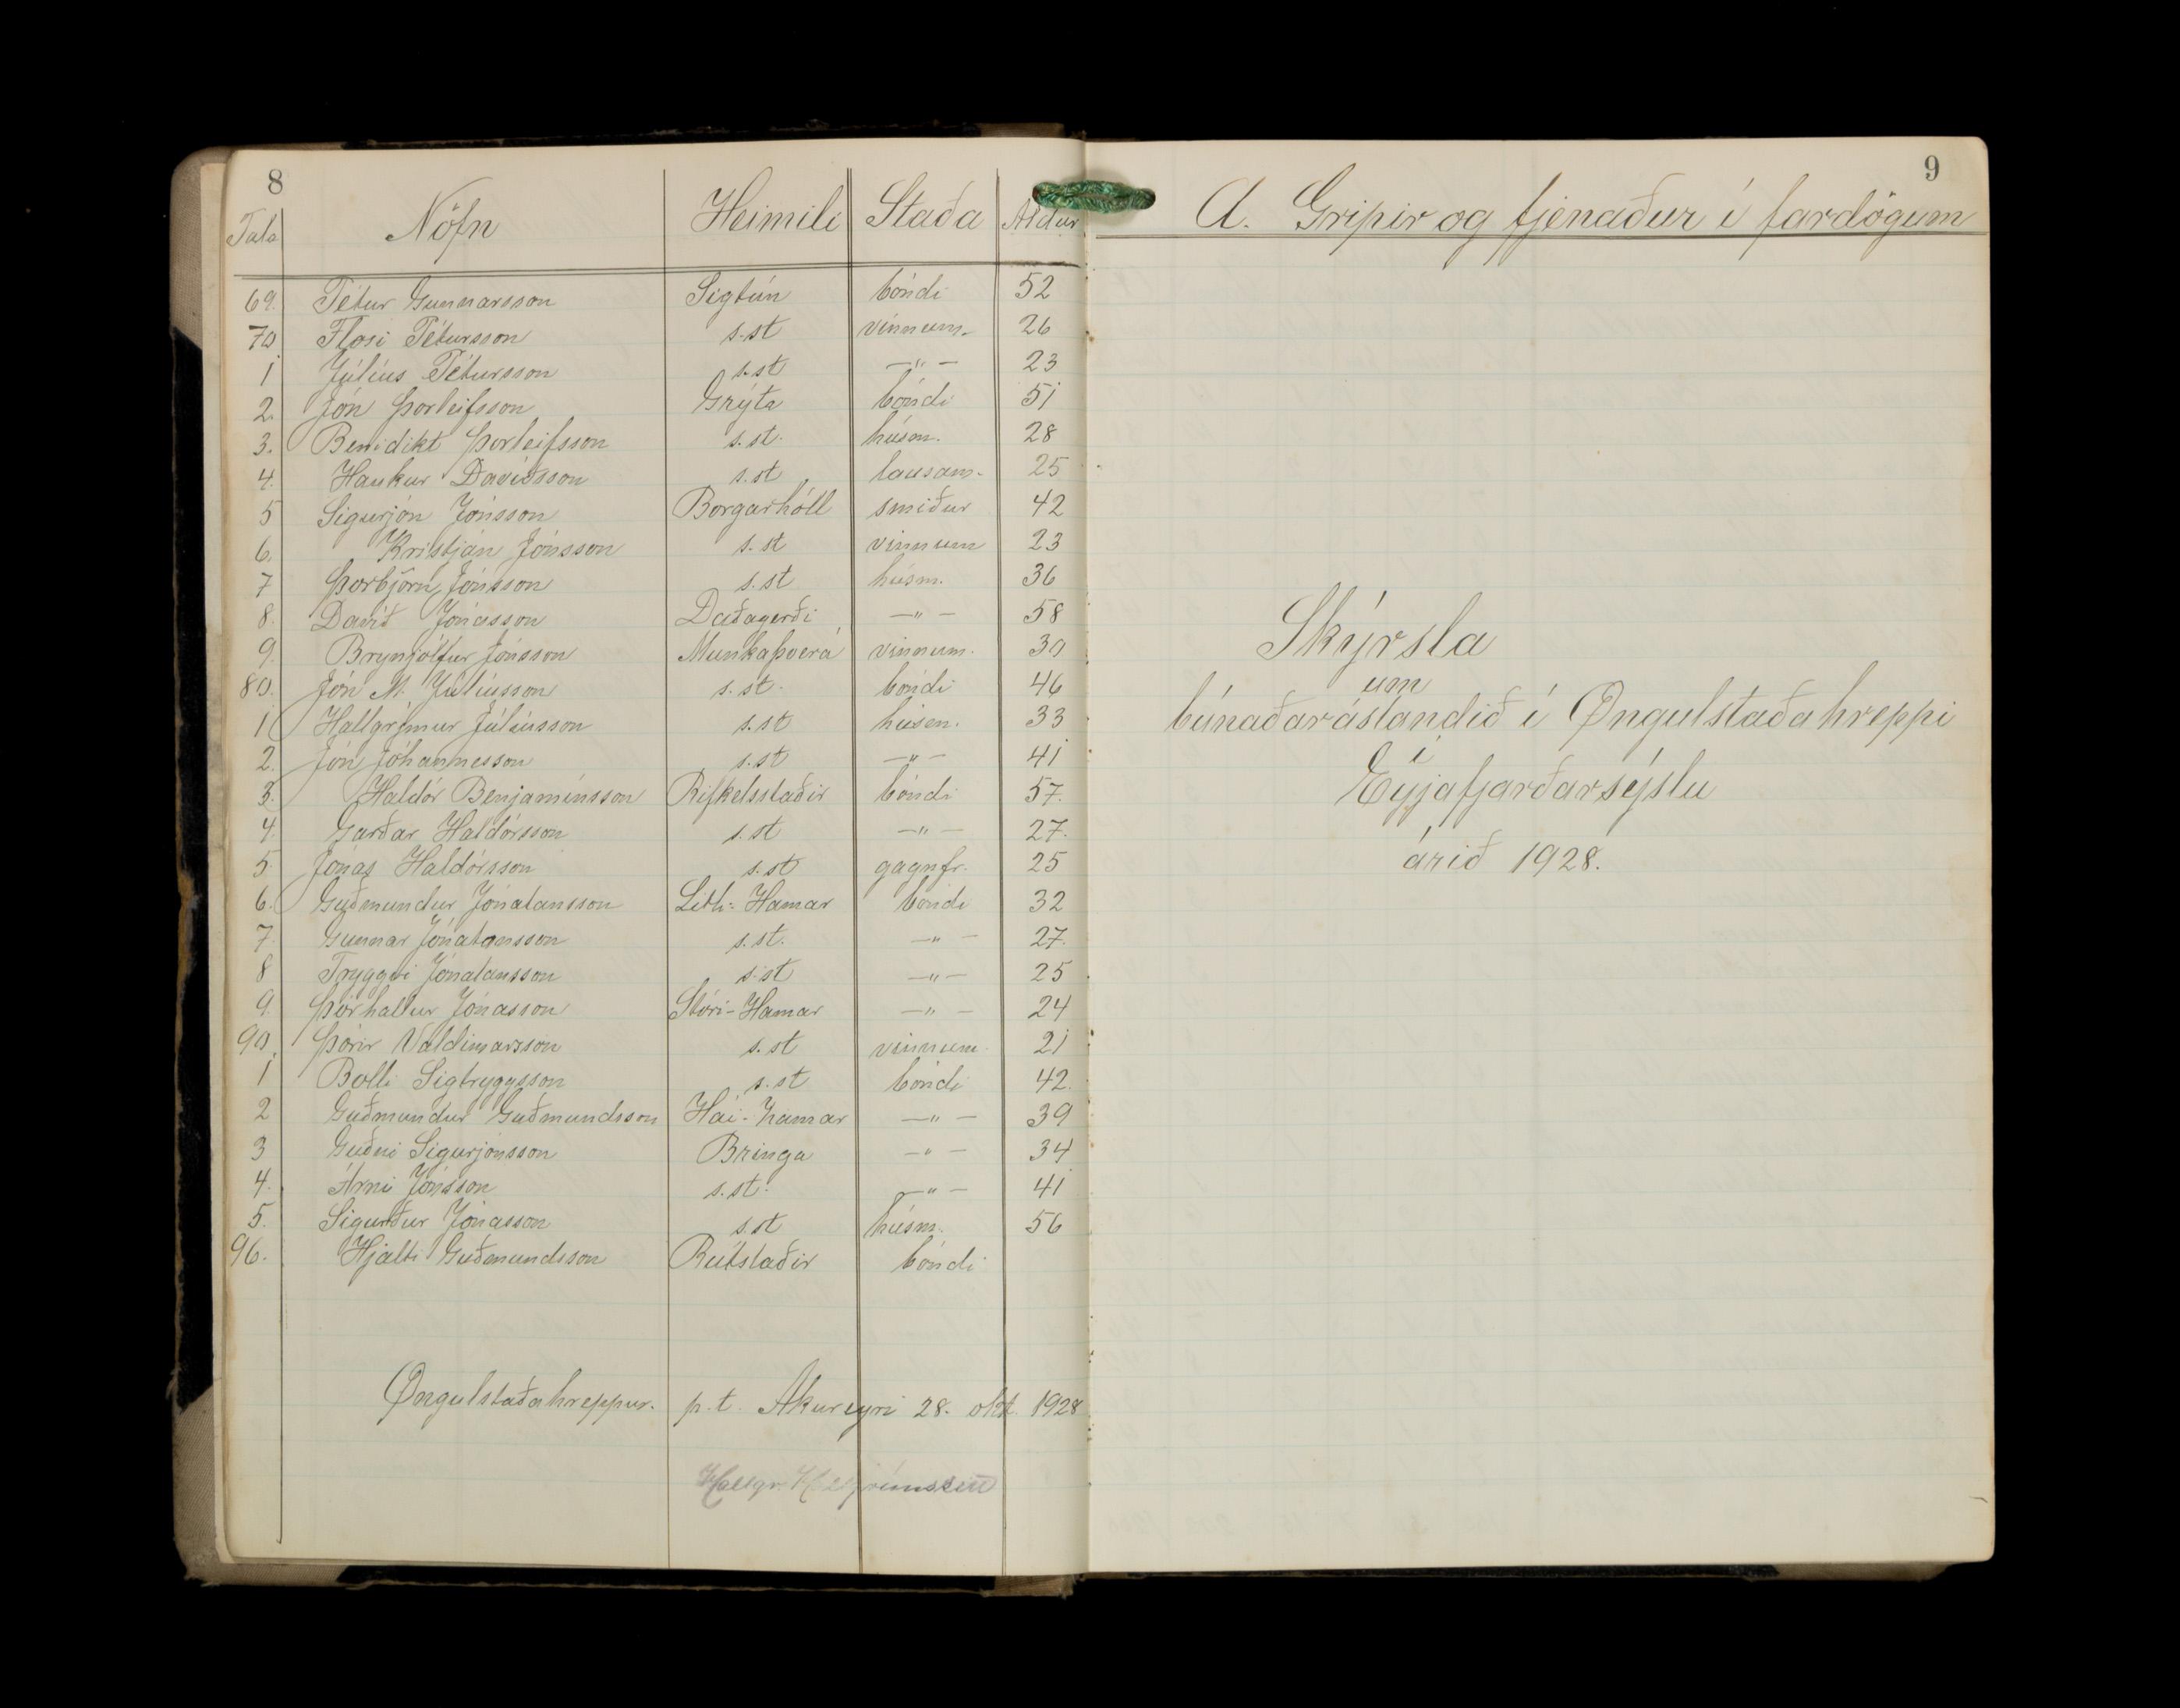 8
Tala Nöfn Heimili Staða Aldur
69. Pétur Gunnarsson Sigtún bóndi 52
70 Flosi Pétursson s.st vinnum- 26
1 Júlíus Pétursson s.st —"— 23
2. Jón Þorleifsson Grýta bóndi 51
3. Benidikt Þorleifsson s.st. húsm. 28
4. Haukur Davíðsson s.st lausam- 25
5 Sigurjón Jónsson Borgarhóll smiður 42
6. Kristján Jónsson s.st vinnum 23
7 Þorbjörn Jónsson s.st húsm. 36
8. Davíð Jónasson Daðagerði —"— 58
9. Brynjólfur Jónsson Munkaþverá vinnum. 30
80. Jón M. Júlíusson s.st. bóndi 46
1 Hallgrímur Júlíusson s.st húsm. 33
2. Jón Jóhannesson s.st —"— 41
3. Haldór Benjamínsson Rifkelsstaðir bóndi 57.
4. Garðar Haldórsson s.st —"— 27.
5. Jónas Haldórsson s.st gagnfr. 25
6. Guðmundur Jónatansson Litli-Hamar bóndi 32
7. Gunnar Jónatansson s.st. —"— 27.
8 Tryggvi Jónatansson s.st —"— 25
9. Þórhallur Jónasson Stóri-Hamar —"— 24
90. Þórir Valdimarsson s.st vinnum. 21
1 Bolli Sigtryggsson s.st bóndi 42.
2 Guðmundur Guðmundsson Hái-hamar —"— 39
3 Guðni Sigurjónsson Bringa —"— 34
4. Árni Jónsson s.st. —"— 41
5. Sigurður Jónasson s.st húsm. 56
96. Hjalti Guðmundsson Rútstaðir bóndi
Öngulstaðahreppur. p.t. Akureyri 28. okt. 1928
Hallgr. Hallgrímsson
9
A. Gripir og fjenaður í fardögum
Skýrsla
um
búnaðarástandið í Öngulstaðahreppi
í
Eyjafjarðarsýslu
árið 1928.